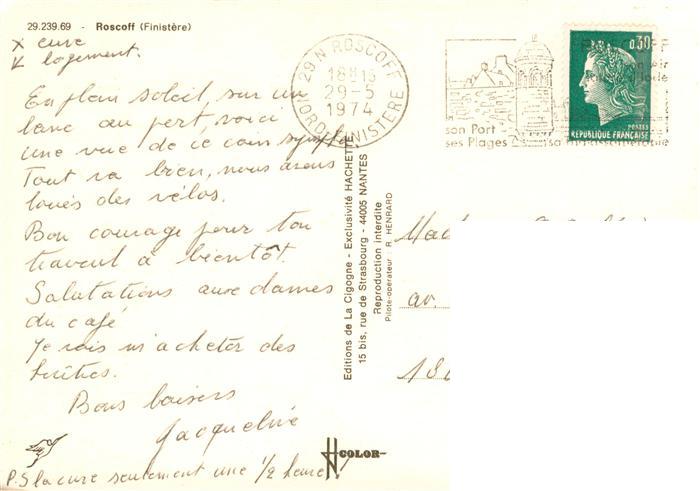 29.239.69 - Roscoff (Finistère)
x cure
↙ logement.
En plein soleil, sur un
banc au port, voici
une vue de ce coin sympa.
Tout va bien, nous avons
loués des vélos.
Bon courage pour ton
travail à bientôt.
Salutations aux dames
du café
Je vais m'acheter des
huîtres.
Bons baisers
Jacqueline
P.S la cure seulement une 1/2 heure.
29 N ROSCOFF
18H15
29-5
1974
NORD FINISTERE
son Port
ses Plages
0,30
POSTES
REPUBLIQUE FRANÇAISE
Editions de La Cigogne - Exclusivité HACHETTE
15 bis, rue de Strasbourg - 44005 NANTES
Reproduction interdite
Pilote-opérateur R. HENRARD
av.
COLOR